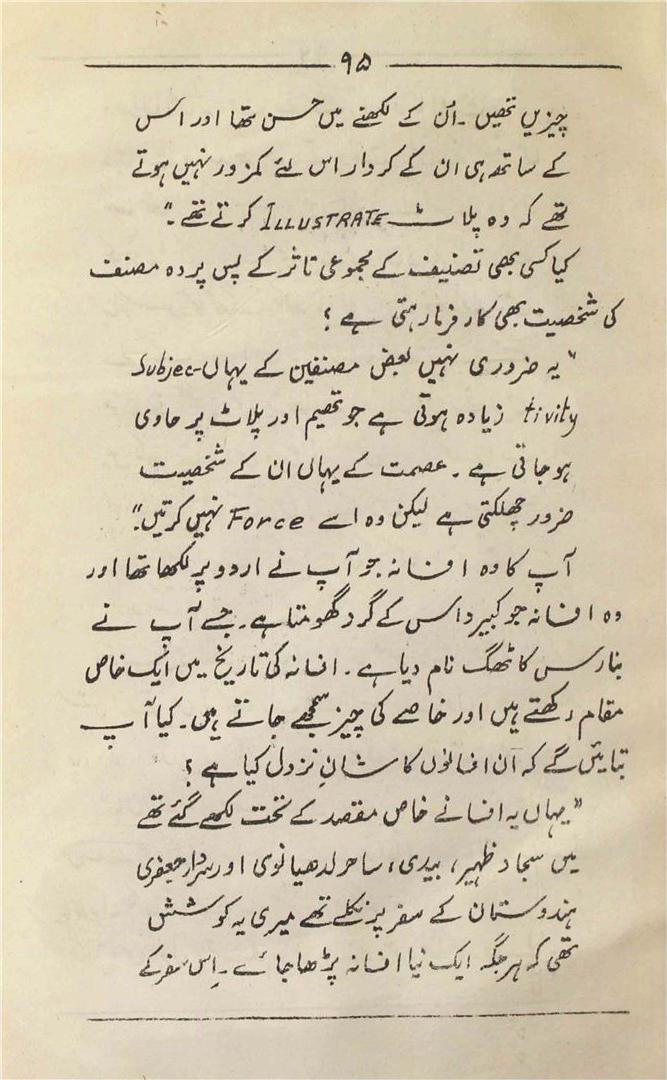 ۹۵
چیزیں تھیں ۔ اُن کے لکھنے میں حسن تھا اور اس
کے ساتھ ہی ان کے کردار اس لئے کمزور نہیں ہوتے
تھے کہ وہ پلاٹ ILLUSTRATE کرتے تھے ۔"
کیا کسی بھی تصنیف کے مجموعی تاثر کے پس پردہ مصنف
کی شخصیت بھی کارفرما رہتی ہے ؟
"یہ ضروری نہیں بعض مصنفین کے یہاں Subjec-
tivity زیادہ ہوتی ہے جو تھیم اور پلاٹ پر حاوی
ہو جاتی ہے ۔ عصمت کے یہاں ان کے شخصیت
ضرور چھلکتی ہے لیکن وہ اسے Force نہیں کرتیں ۔"
آپ کا وہ افسانہ جو آپ نے اردو پر لکھا تھا اور
وہ افسانہ جو کبیر داس کے گرد گھومتا ہے ۔ جسے آپ نے
بنارس کا ٹھگ نام دیا ہے ۔ افسانہ کی تاریخ میں ایک خاص
مقام رکھتے ہیں اور خاصے کی چیز سمجھے جاتے ہیں ۔ کیا آپ
بتائیں گے کہ اُن افسانوں کا شانِ نزول کیا ہے ؟
"یہاں یہ افسانے خاص مقصد کے تحت لکھے گئے تھے
میں سجاد ظہیر ، بیدی ، ساحر لدھیانوی اور سردار جعفری
ہندوستان کے سفر پر نکلے تھے میری یہ کوشش
تھی کہ ہر جگہ ایک نیا افسانہ پڑھا جائے ۔ اِس سفر کے